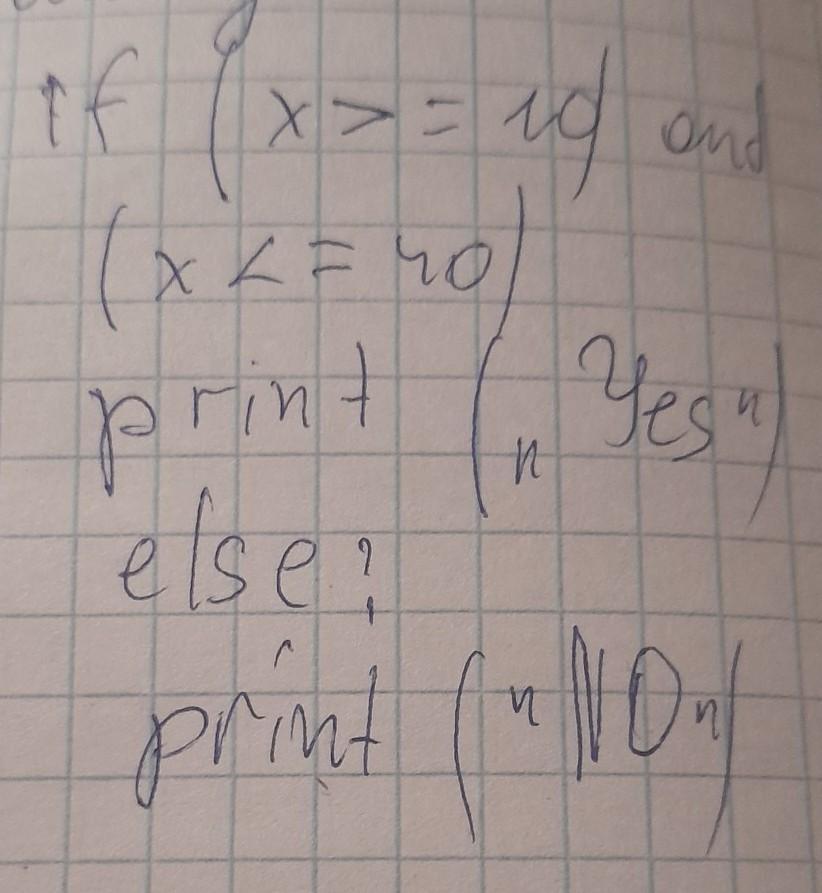 if (x >= 10) and
(x <= 40)
print („Yes")
else:
print ("NO")